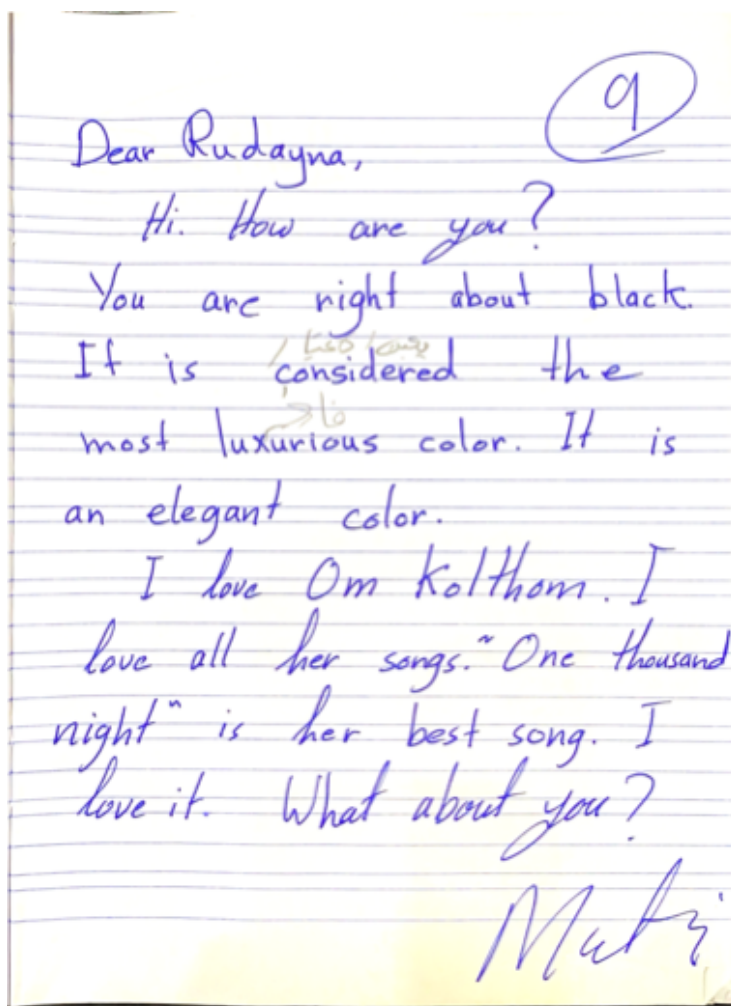 9
Dear Rudayna,
Hi. How are you?
You are right about black.
It is considered the
most luxurious color. It is
an elegant color.
I love Om Kolthom. I
love all her songs. "One thousand
night" is her best song. I
love it. What about you?